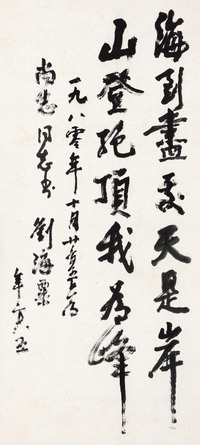 海到盡處天是岸
山登絕頂我為峯
一九八零年十月廿
同志 劉海粟
年